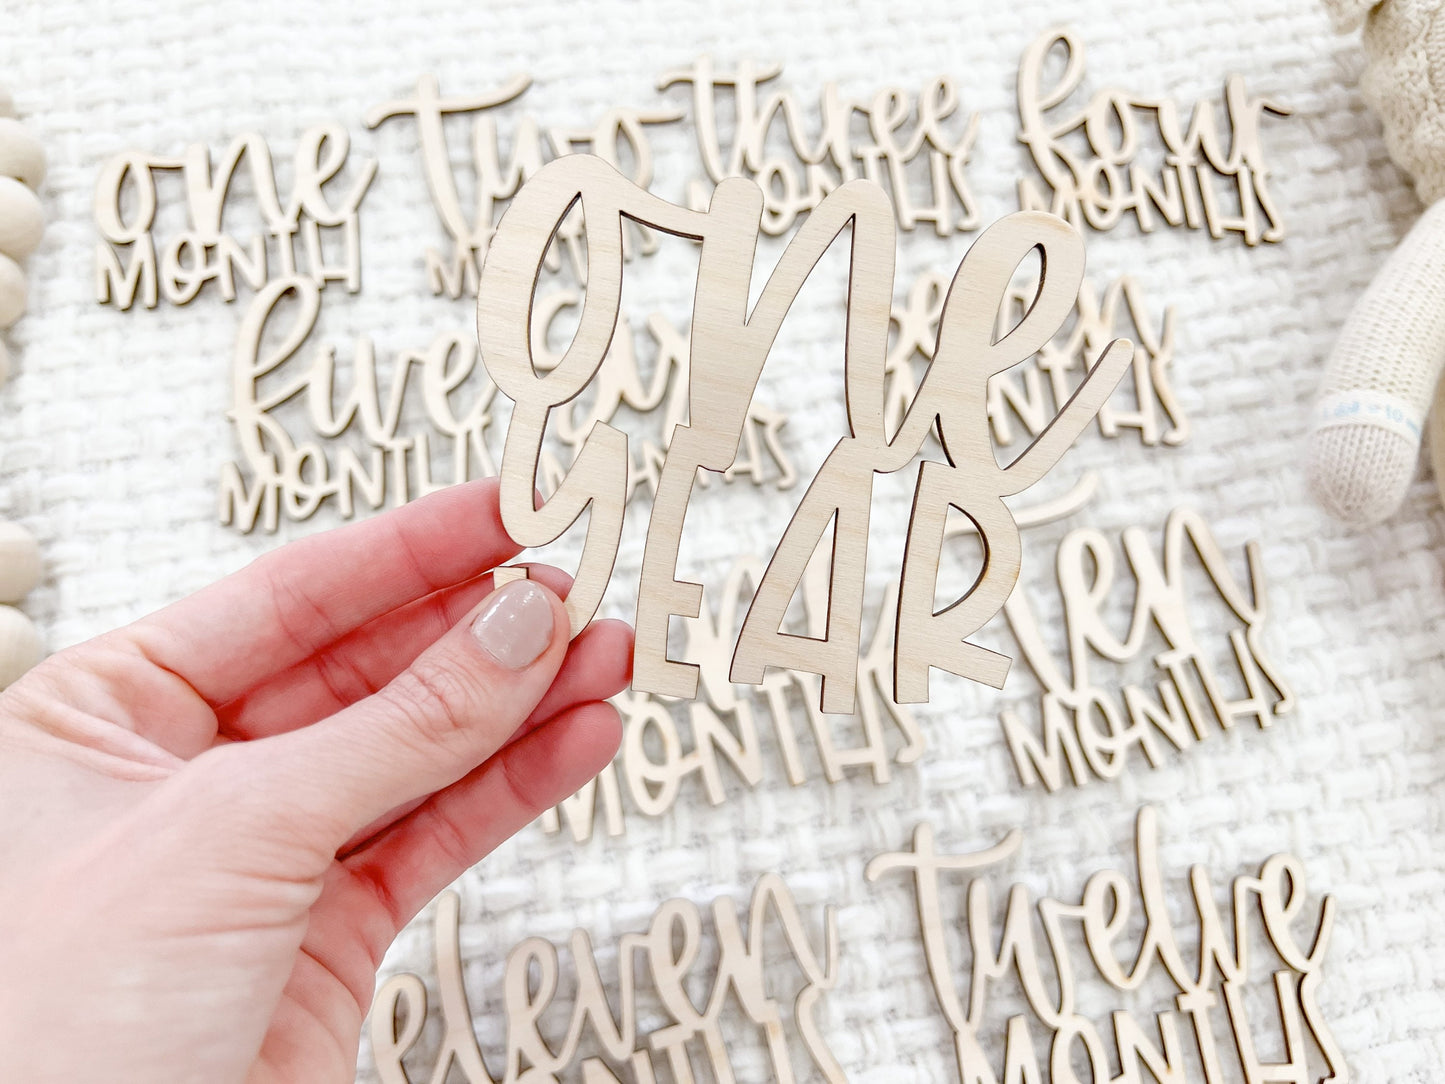 one
MONTH
two
MONTHS
three
MONTHS
four
MONTHS
one
YEAR
five
MONTHS
six
MONTHS
MONTHS
MONTHS
ten
MONTHS
eleven
MONTHS
twelve
MONTHS